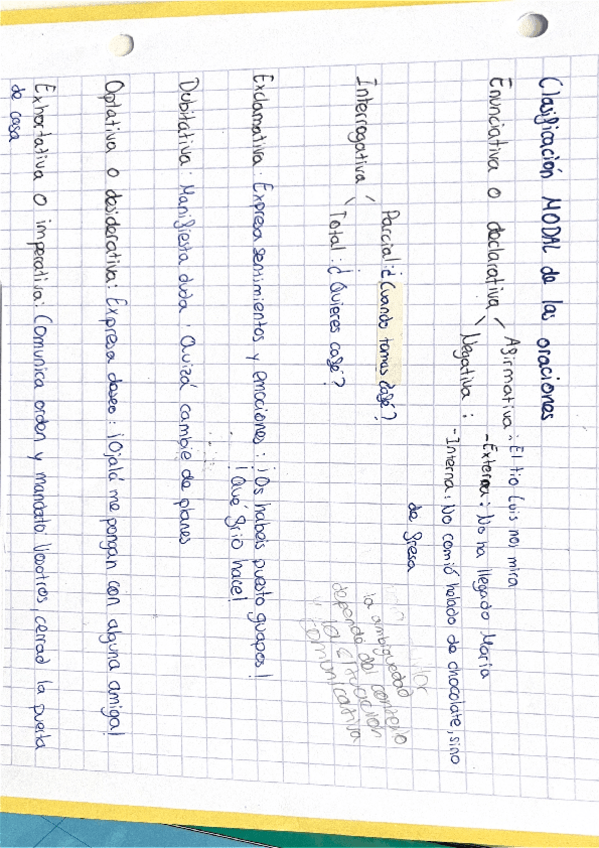 Clasificación MODAL de las oraciones
Enunciativa o declarativa
Afirmativa: El tío Luis nos mira
Negativa:
-Externa: No ha llegado María
-Interna: No comió helado de chocolate, sino
de fresa
Interrogativa
Parcial: ¿Cuando tomas café?
Total: ¿Quieres café?
la ambigüedad
depende del contexto
y la situación
comunicativa
Exclamativa: Expresa sentimientos y emociones: ¡Os habéis puesto guapos!
¡Qué frío hace!
Dubitativa: Manifiesta duda: Quizá cambie de planes
Optativa o desiderativa: Expresa deseo: ¡Ojalá me pongan con alguna amiga!
Exhortativa o imperativa: Comunica orden y mandato: Vosotros, cerrad la puerta
de casa